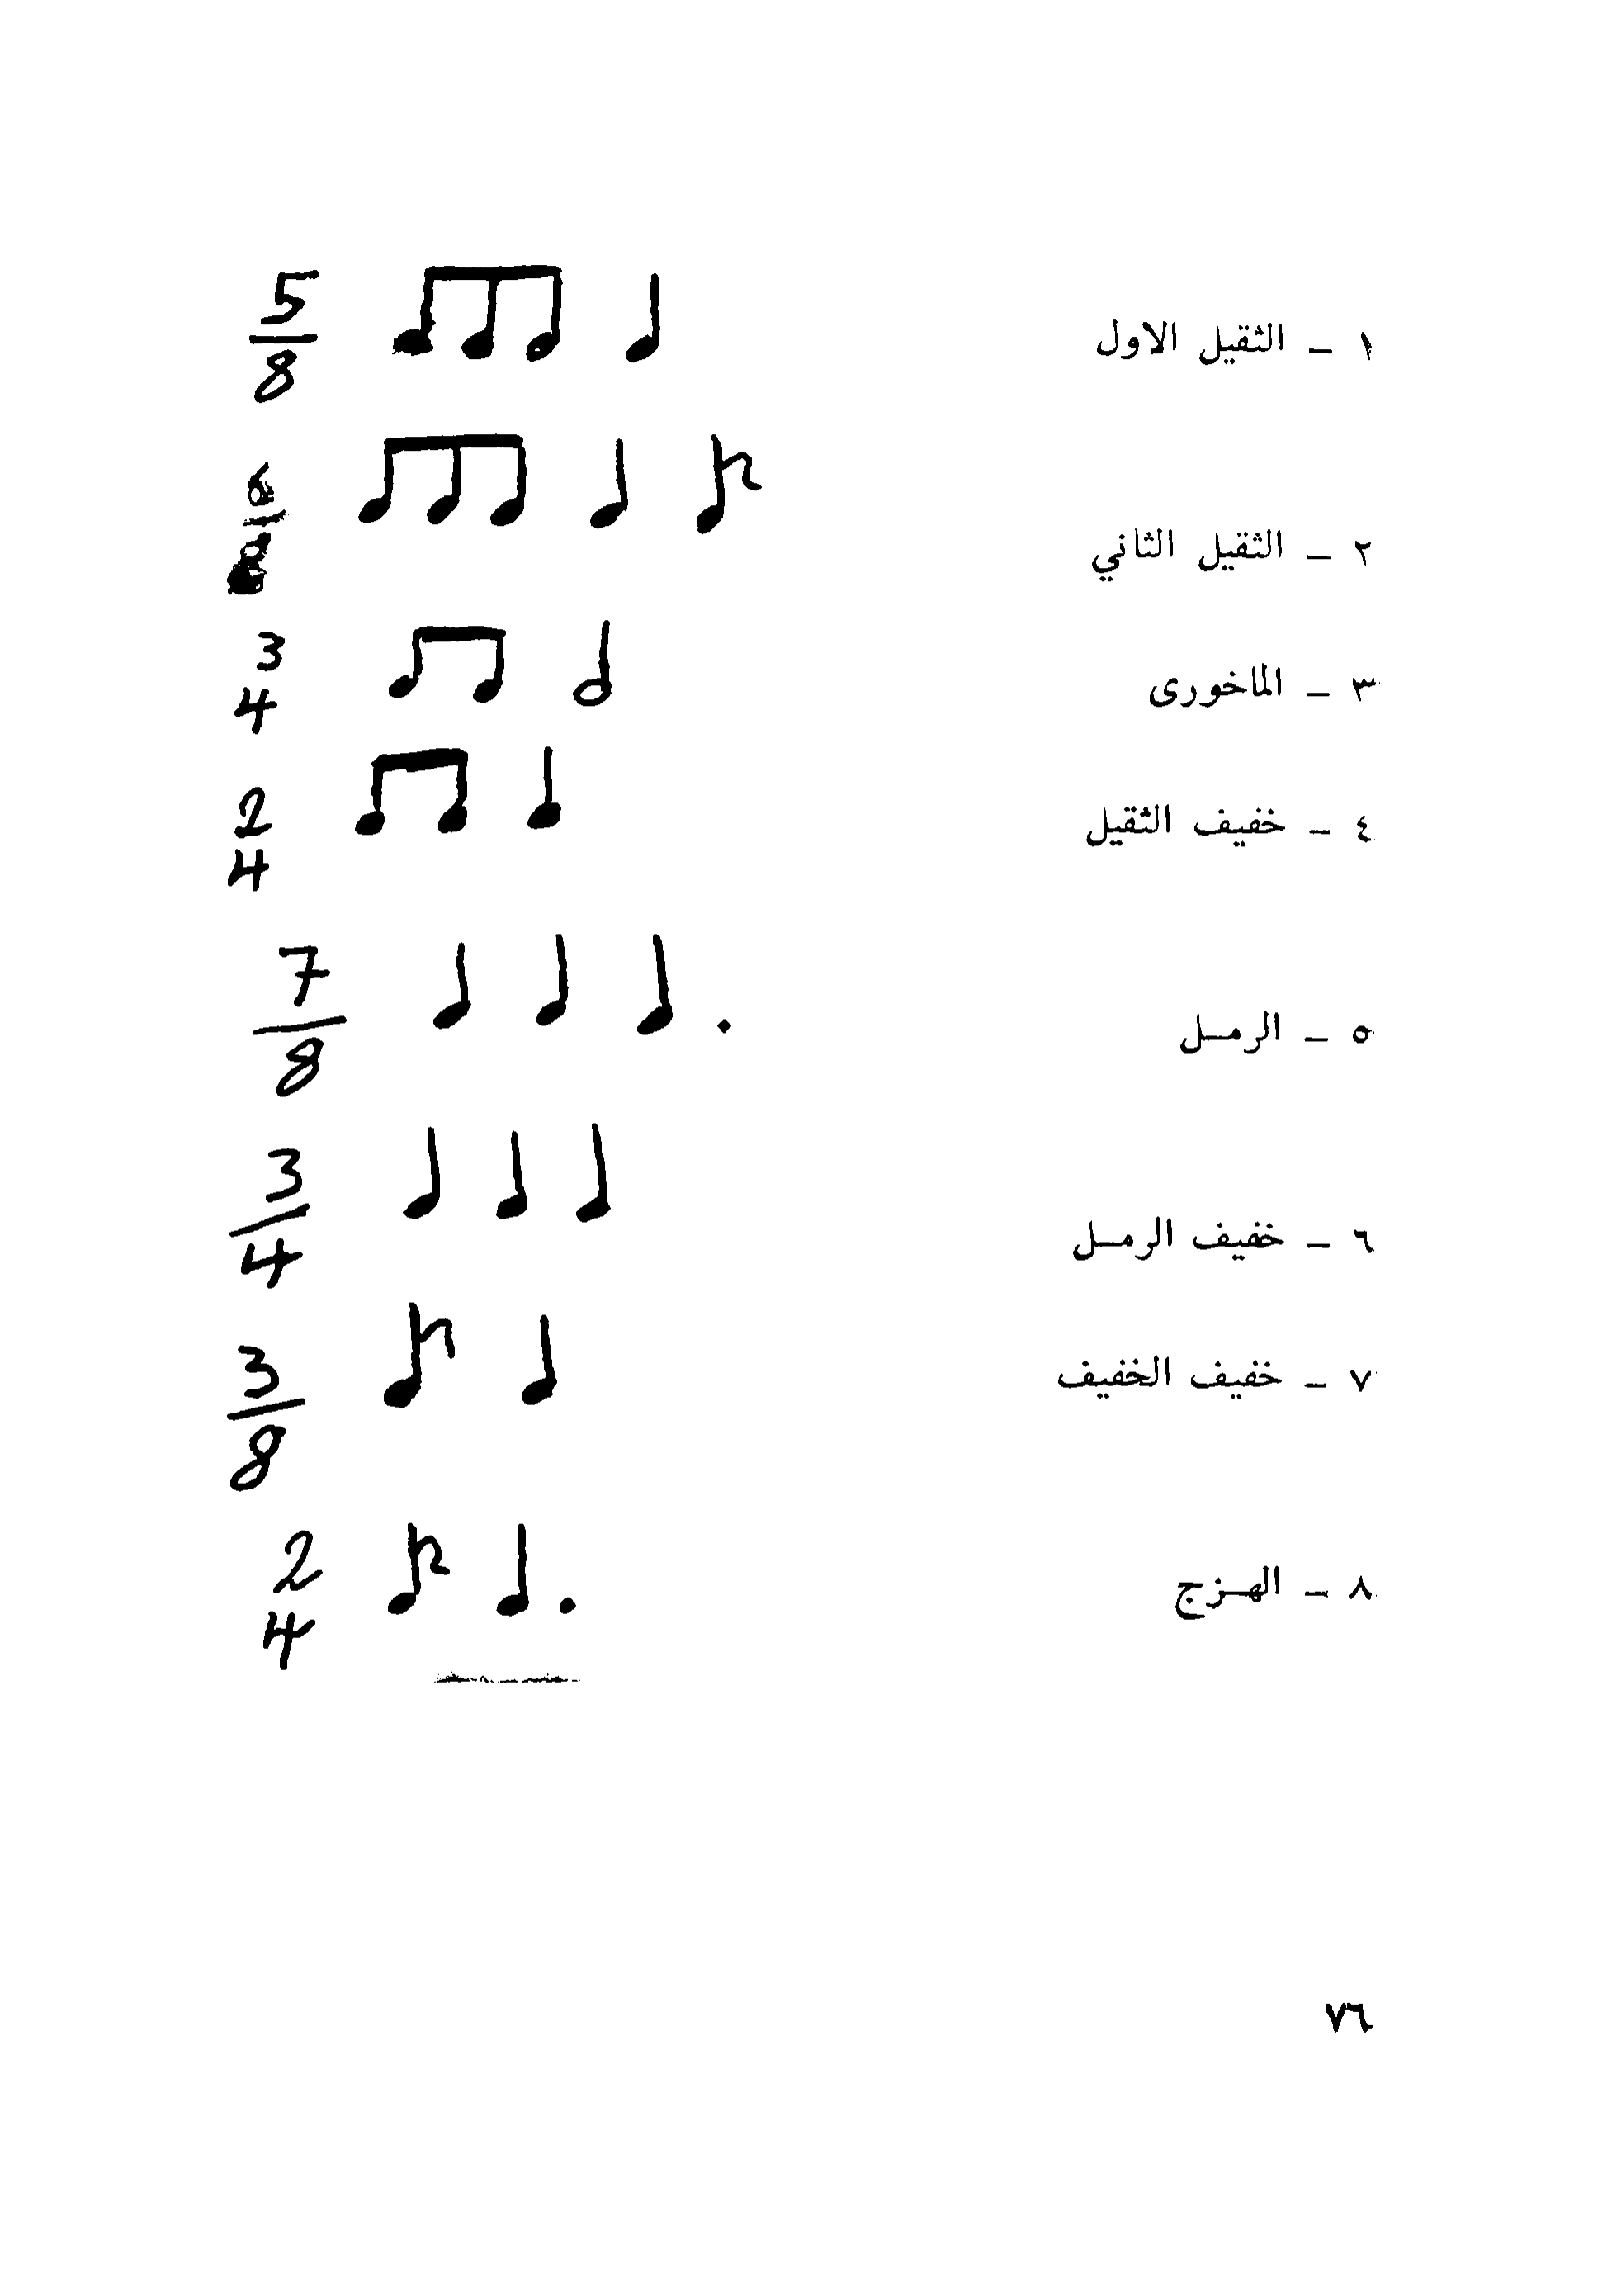 ١ – الثقيل الاول 5/8
٢ – الثقيل الثاني
٣ – الماخورى 3 4
٤ – خفيف الثقيل 2 4
٥ – الرمـل 7/8
٦ – خفيف الرمـل 3/4
٧ – خفيف الخفيف 3/8
٨ – الهـزج 2 4
٧٦